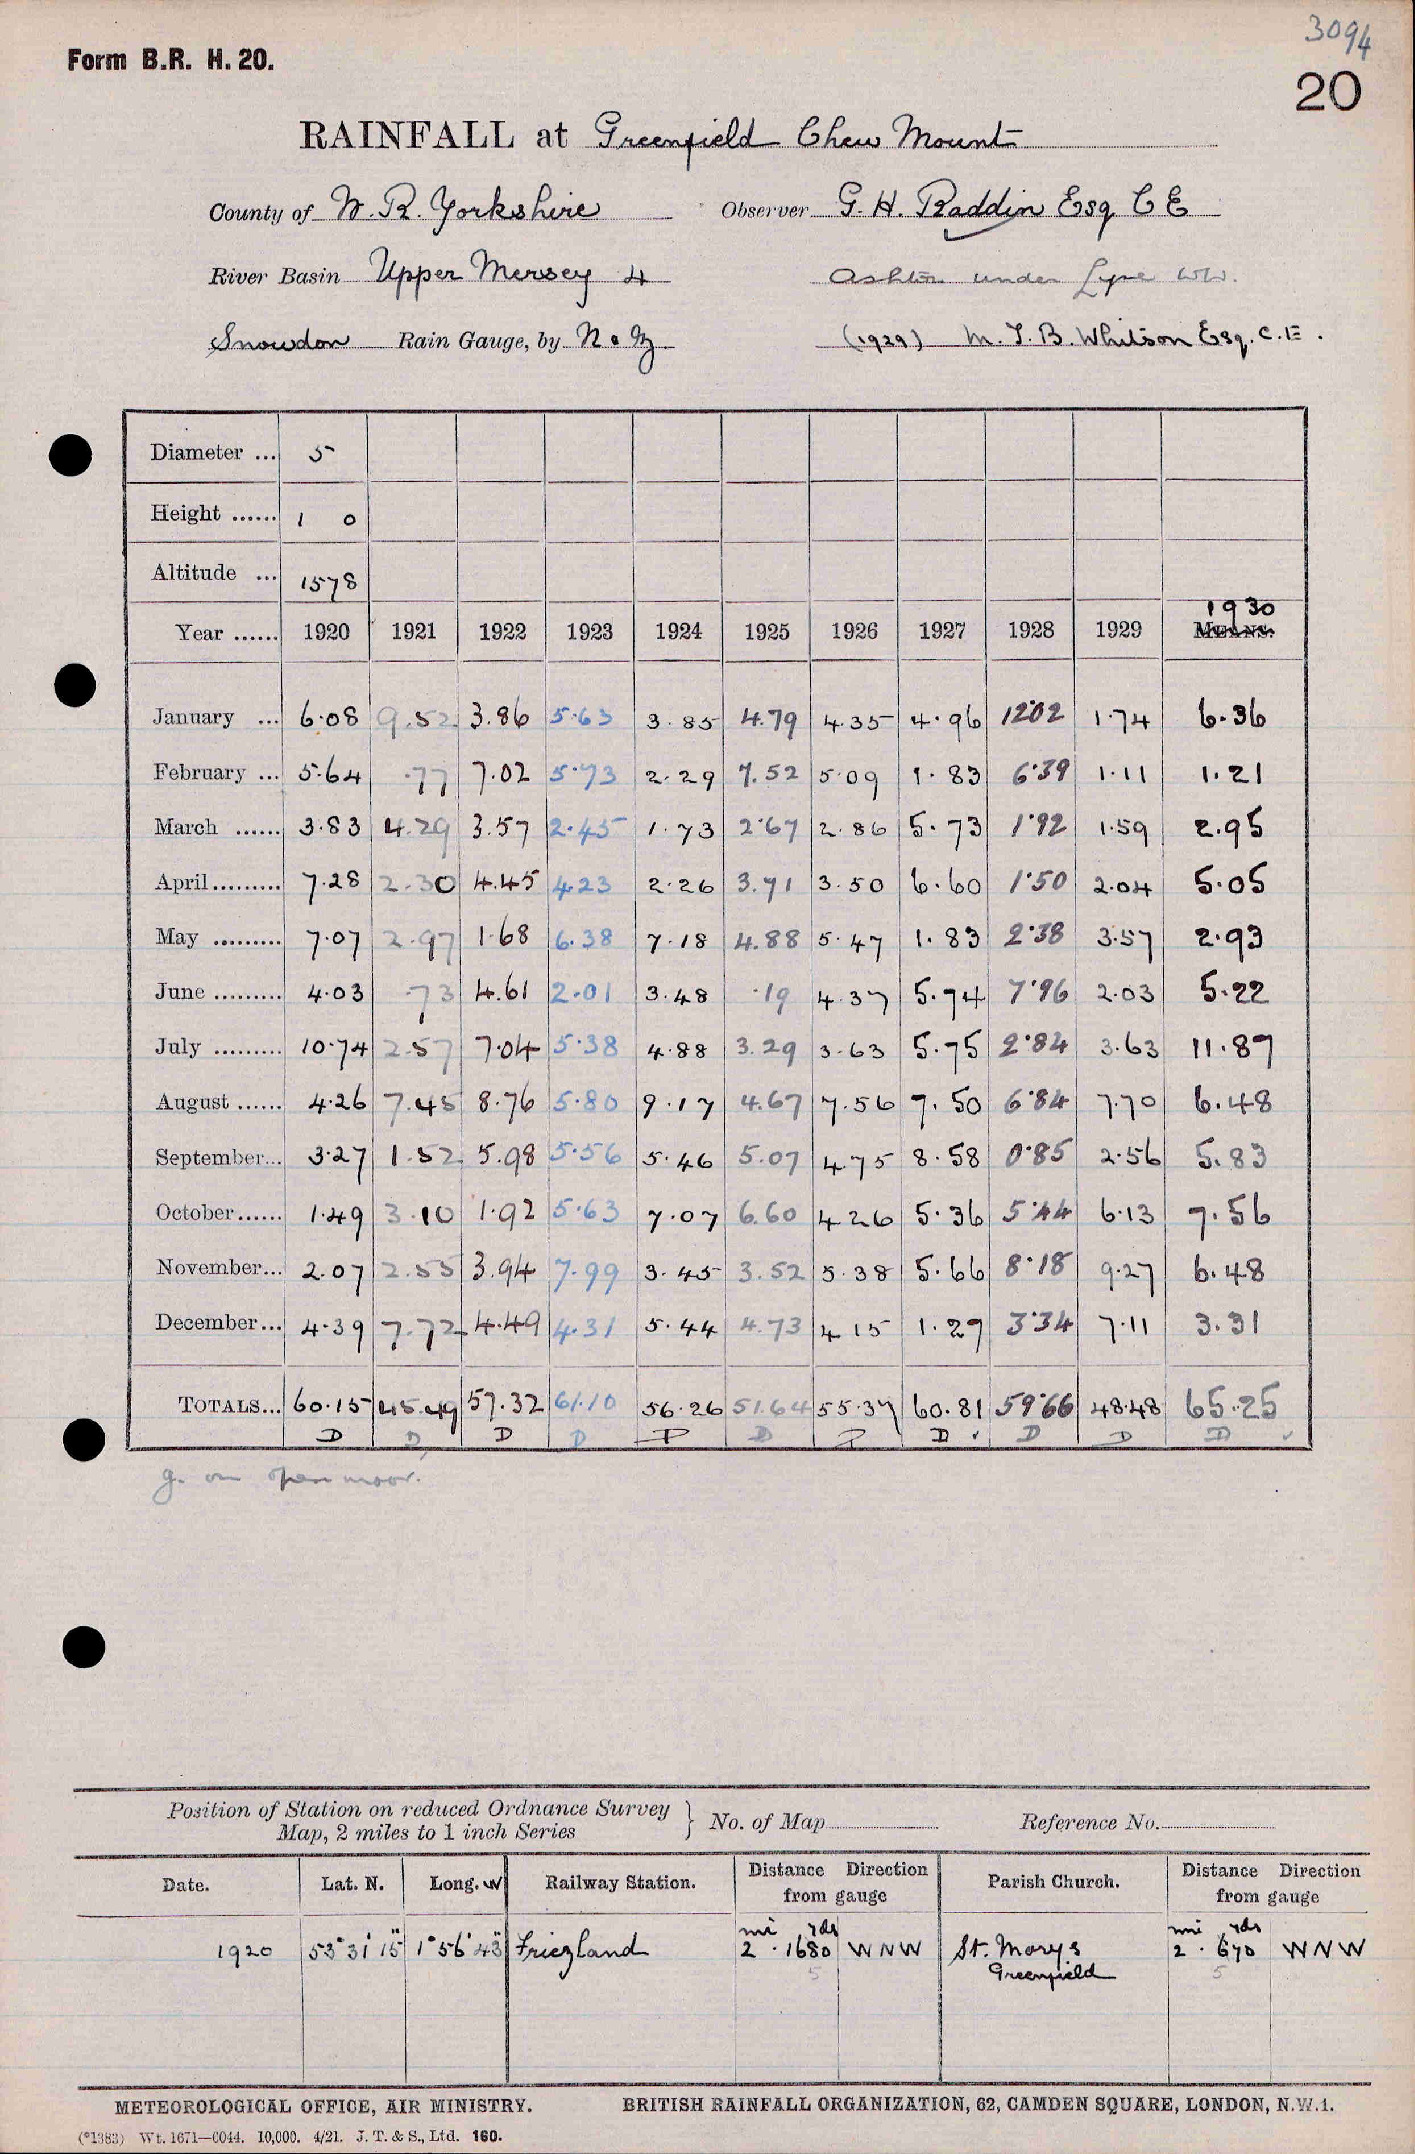 3094
Form B.R. H. 20.
20
RAINFALL at Greenfield Chew Mount
County of W. R. Yorkshire Observer G. H. Raddin Esq C E
River Basin Upper Mersey 4 Ashton under Lyne WW.
Snowdon Rain Gauge, by N & Z (1929) M. T. B. Whitson Esq. C.E.
Diameter ... 5
Height ...... 1 0
Altitude ... 1578
1930
Year ...... 1920 1921 1922 1923 1924 1925 1926 1927 1928 1929 MEANS.
January ... 6.08 9.52 3.86 5.63 3.85 4.79 4.35 4.96 12.02 1.74 6.36
February ... 5.64 .77 7.02 5.73 2.29 7.52 5.09 1.83 6.39 1.11 1.21
March ...... 3.83 4.29 3.57 2.45 1.73 2.67 2.86 5.73 1.92 1.59 2.95
April......... 7.28 2.30 4.45 4.23 2.26 3.71 3.50 6.60 1.50 2.04 5.05
May ......... 7.07 2.97 1.68 6.38 7.18 4.88 5.47 1.83 2.38 3.57 2.93
June ......... 4.03 .73 4.61 2.01 3.48 .19 4.37 5.74 7.96 2.03 5.22
July ......... 10.74 2.57 7.04 5.38 4.88 3.29 3.63 5.75 2.84 3.63 11.87
August ...... 4.26 7.45 8.76 5.80 9.17 4.67 7.56 7.50 6.84 7.70 6.48
September... 3.27 1.52 5.98 5.56 5.46 5.07 4.75 8.58 0.85 2.56 5.83
October...... 1.49 3.10 1.92 5.63 7.07 6.60 4.26 5.36 5.44 6.13 7.56
November... 2.07 2.55 3.94 7.99 3.45 3.52 5.38 5.66 8.18 9.27 6.48
December... 4.39 7.72 4.49 4.31 5.44 4.73 4.15 1.27 3.34 7.11 3.31
TOTALS... 60.15 45.49 57.32 61.10 56.26 51.64 55.37 60.81 59.66 48.48 65.25
D D D D D D D D D D
g. on open moor.
Position of Station on reduced Ordnance Survey
Map, 2 miles to 1 inch Series } No. of Map Reference No.
Date. Lat. N. Long. W Railway Station. Distance Direction from gauge Parish Church. Distance Direction from gauge
mi yds mi yds
1920 53° 31' 15" 1° 56' 43" Friezland 2 . 1680 WNW St. Mary's 2 . 670 WNW
5 Greenfield 5
METEOROLOGICAL OFFICE, AIR MINISTRY. BRITISH RAINFALL ORGANIZATION, 62, CAMDEN SQUARE, LONDON, N.W.1.
(*1383) Wt. 1671—0044. 10,000. 4/21. J. T. & S., Ltd. 160.